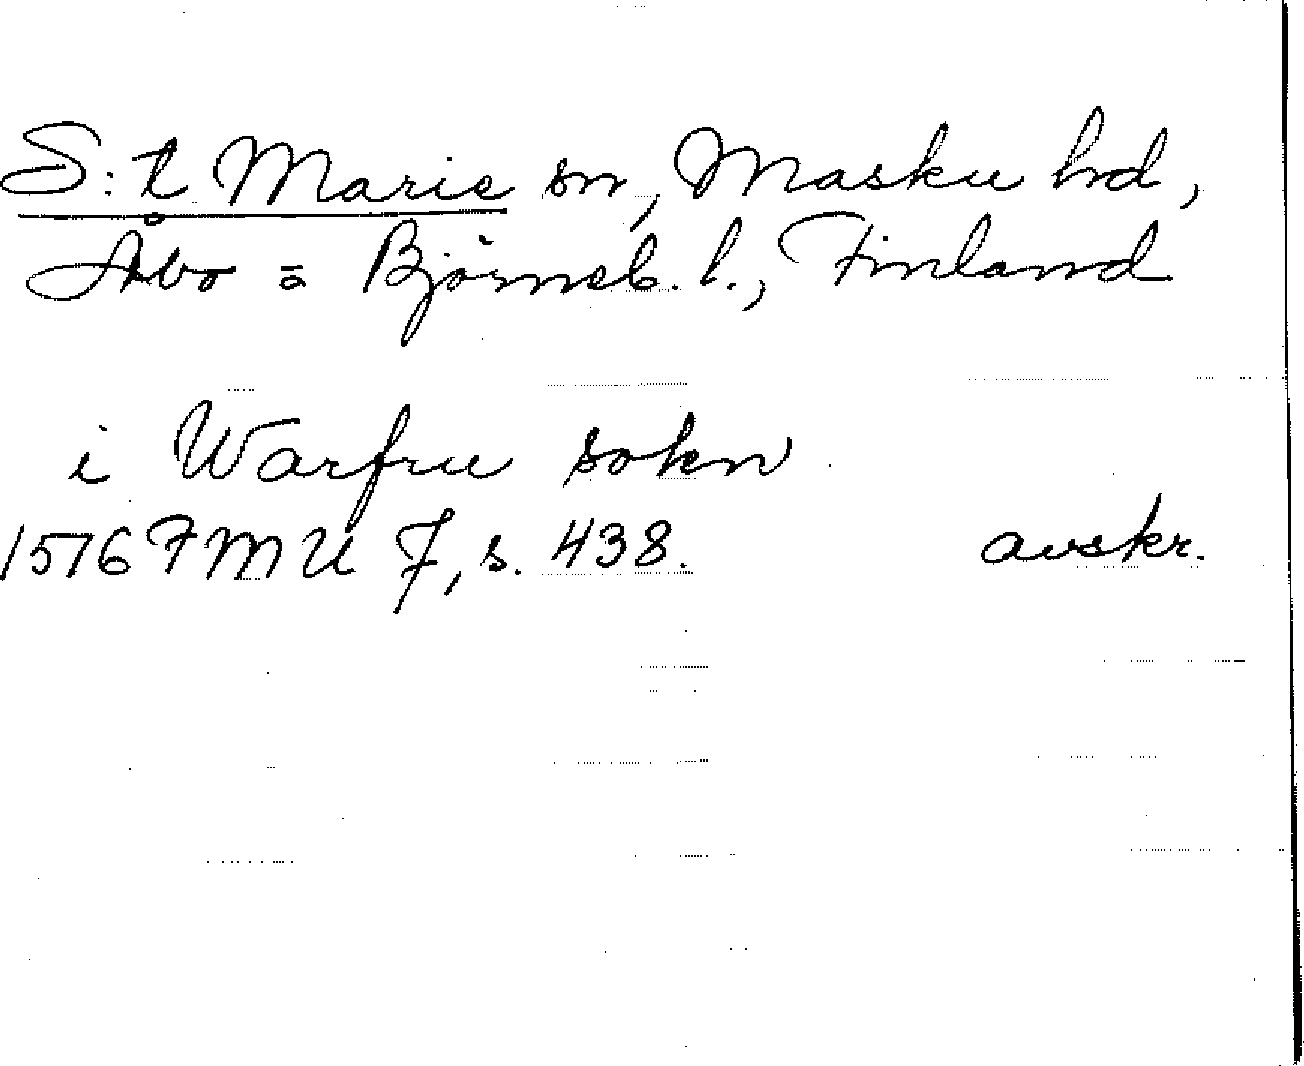 S:t Marie sn, Masku hd,
Åbo = Björneb. l., Finland
i Warfru sokn
1576 FMU 7, s. 438. avskr.